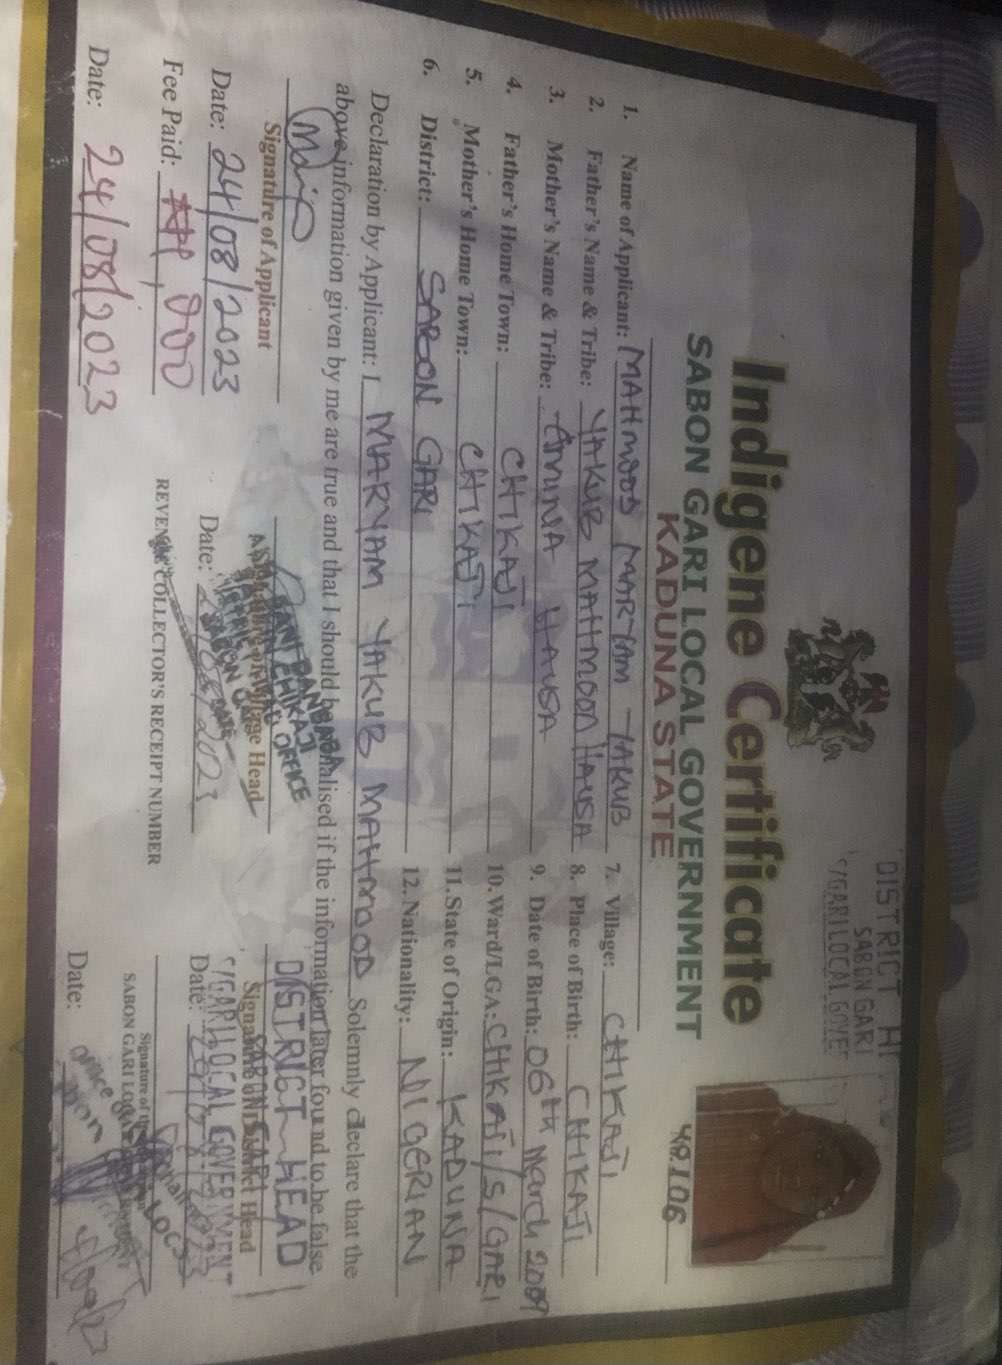 DISTRICT
SABON GARI
S/GARI LOCAL GOVE
Indigene Certificate
SABON GARI LOCAL GOVERNMENT
KADUNA STATE
48106
1. Name of Applicant: MAHMOOD MARYAM YAKUB
2. Father's Name & Tribe: YAKUB MAHMOOD HAUSA
3. Mother's Name & Tribe: AMINA HAUSA
4. Father's Home Town: CHIKAJI
5. Mother's Home Town: CHIKAJI
6. District: SABON GARI
7. Village: CHIKAJI
8. Place of Birth: CHIKAJI
9. Date of Birth: 06th March 2009
10. Ward/LGA: CHIKAJI/S/GARI
11. State of Origin: KADUNA
12. Nationality: NIGERIAN
Declaration by Applicant: I MARYAM YAKUB MAHMOOD Solemnly declare that the
above information given by me are true and that I should be penalised if the information later found to be false
Signature of Applicant
Date: 24/08/2023
Village Head
CHIKAJI
OFFICE
Date:
DISTRICT HEAD
SABON GARI
S/GARI LOCAL GOVERNMENT
Signature of District Head
Date:
Fee Paid: ,000
REVENUE COLLECTOR'S RECEIPT NUMBER
Signature of
SABON GARI
Date: 24/08/2023
Date: